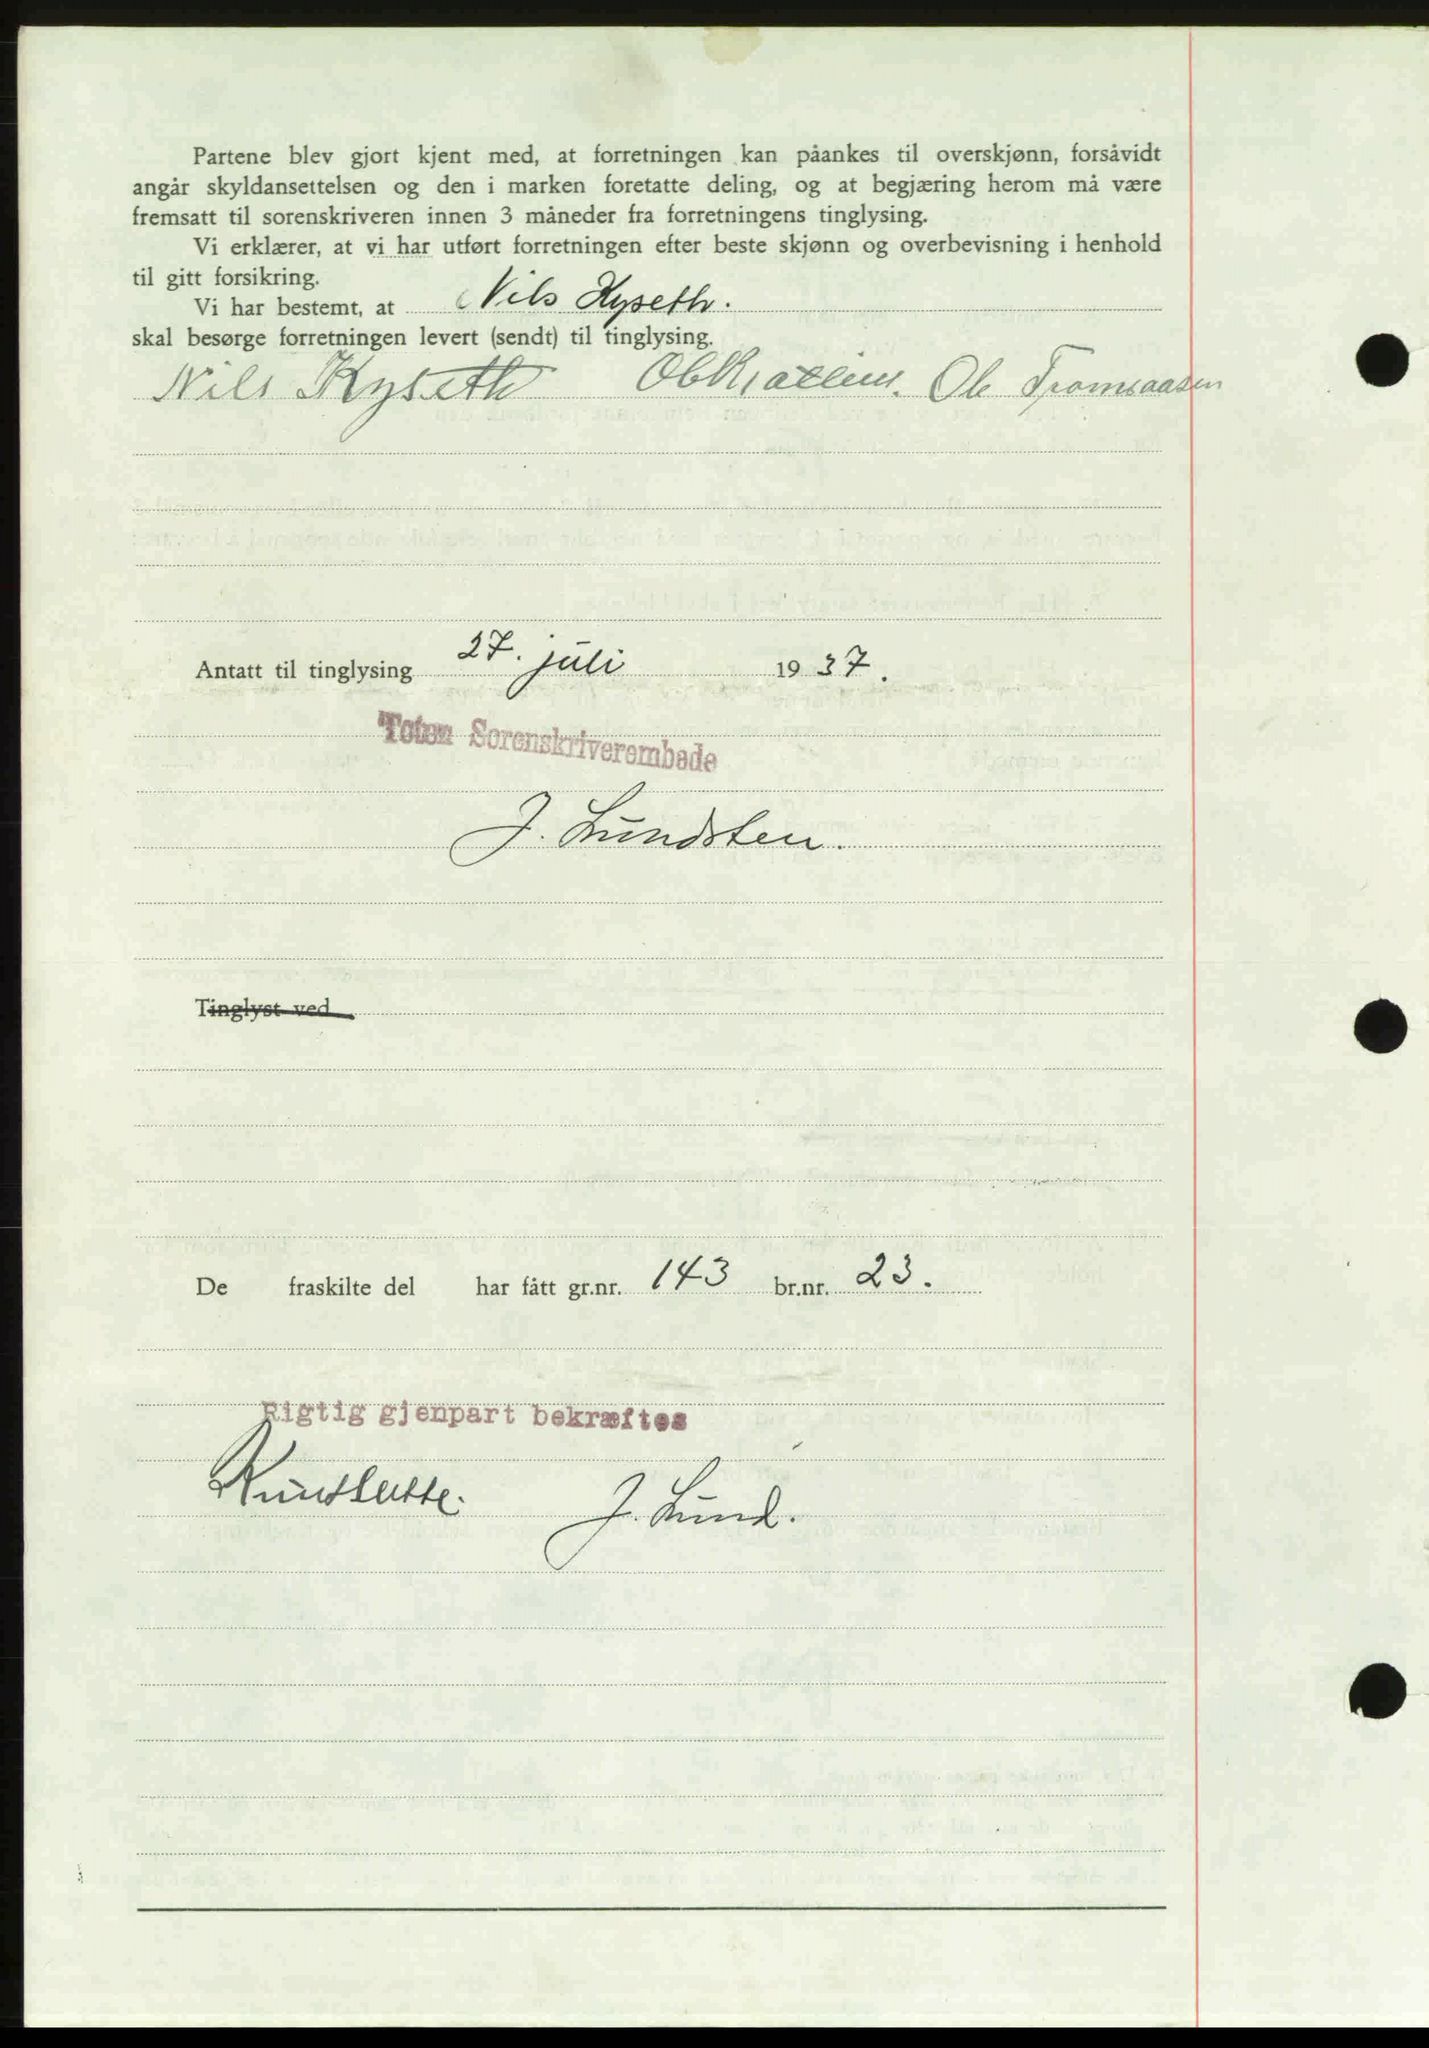 Partene blev gjort kjent med, at forretningen kan påankes til overskjønn, forsåvidt
angår skyldansettelsen og den i marken foretatte deling, og at begjæring herom må være
fremsatt til sorenskriveren innen 3 måneder fra forretningens tinglysing.
Vi erklærer, at vi har utført forretningen efter beste skjønn og overbevisning i henhold
til gitt forsikring.
Vi har bestemt, at Nils Kyseth.
skal besørge forretningen levert (sendt) til tinglysing.
Nils Kyseth Ole Tromsaasen
Antatt til tinglysing 27. juli 1937.
Toten Sorenskriverembede
J. Lundsten.
Tinglyst ved
De fraskilte del har fått gr.nr. 143 br.nr. 23.
Rigtig gjenpart bekræftes
J. Lund.